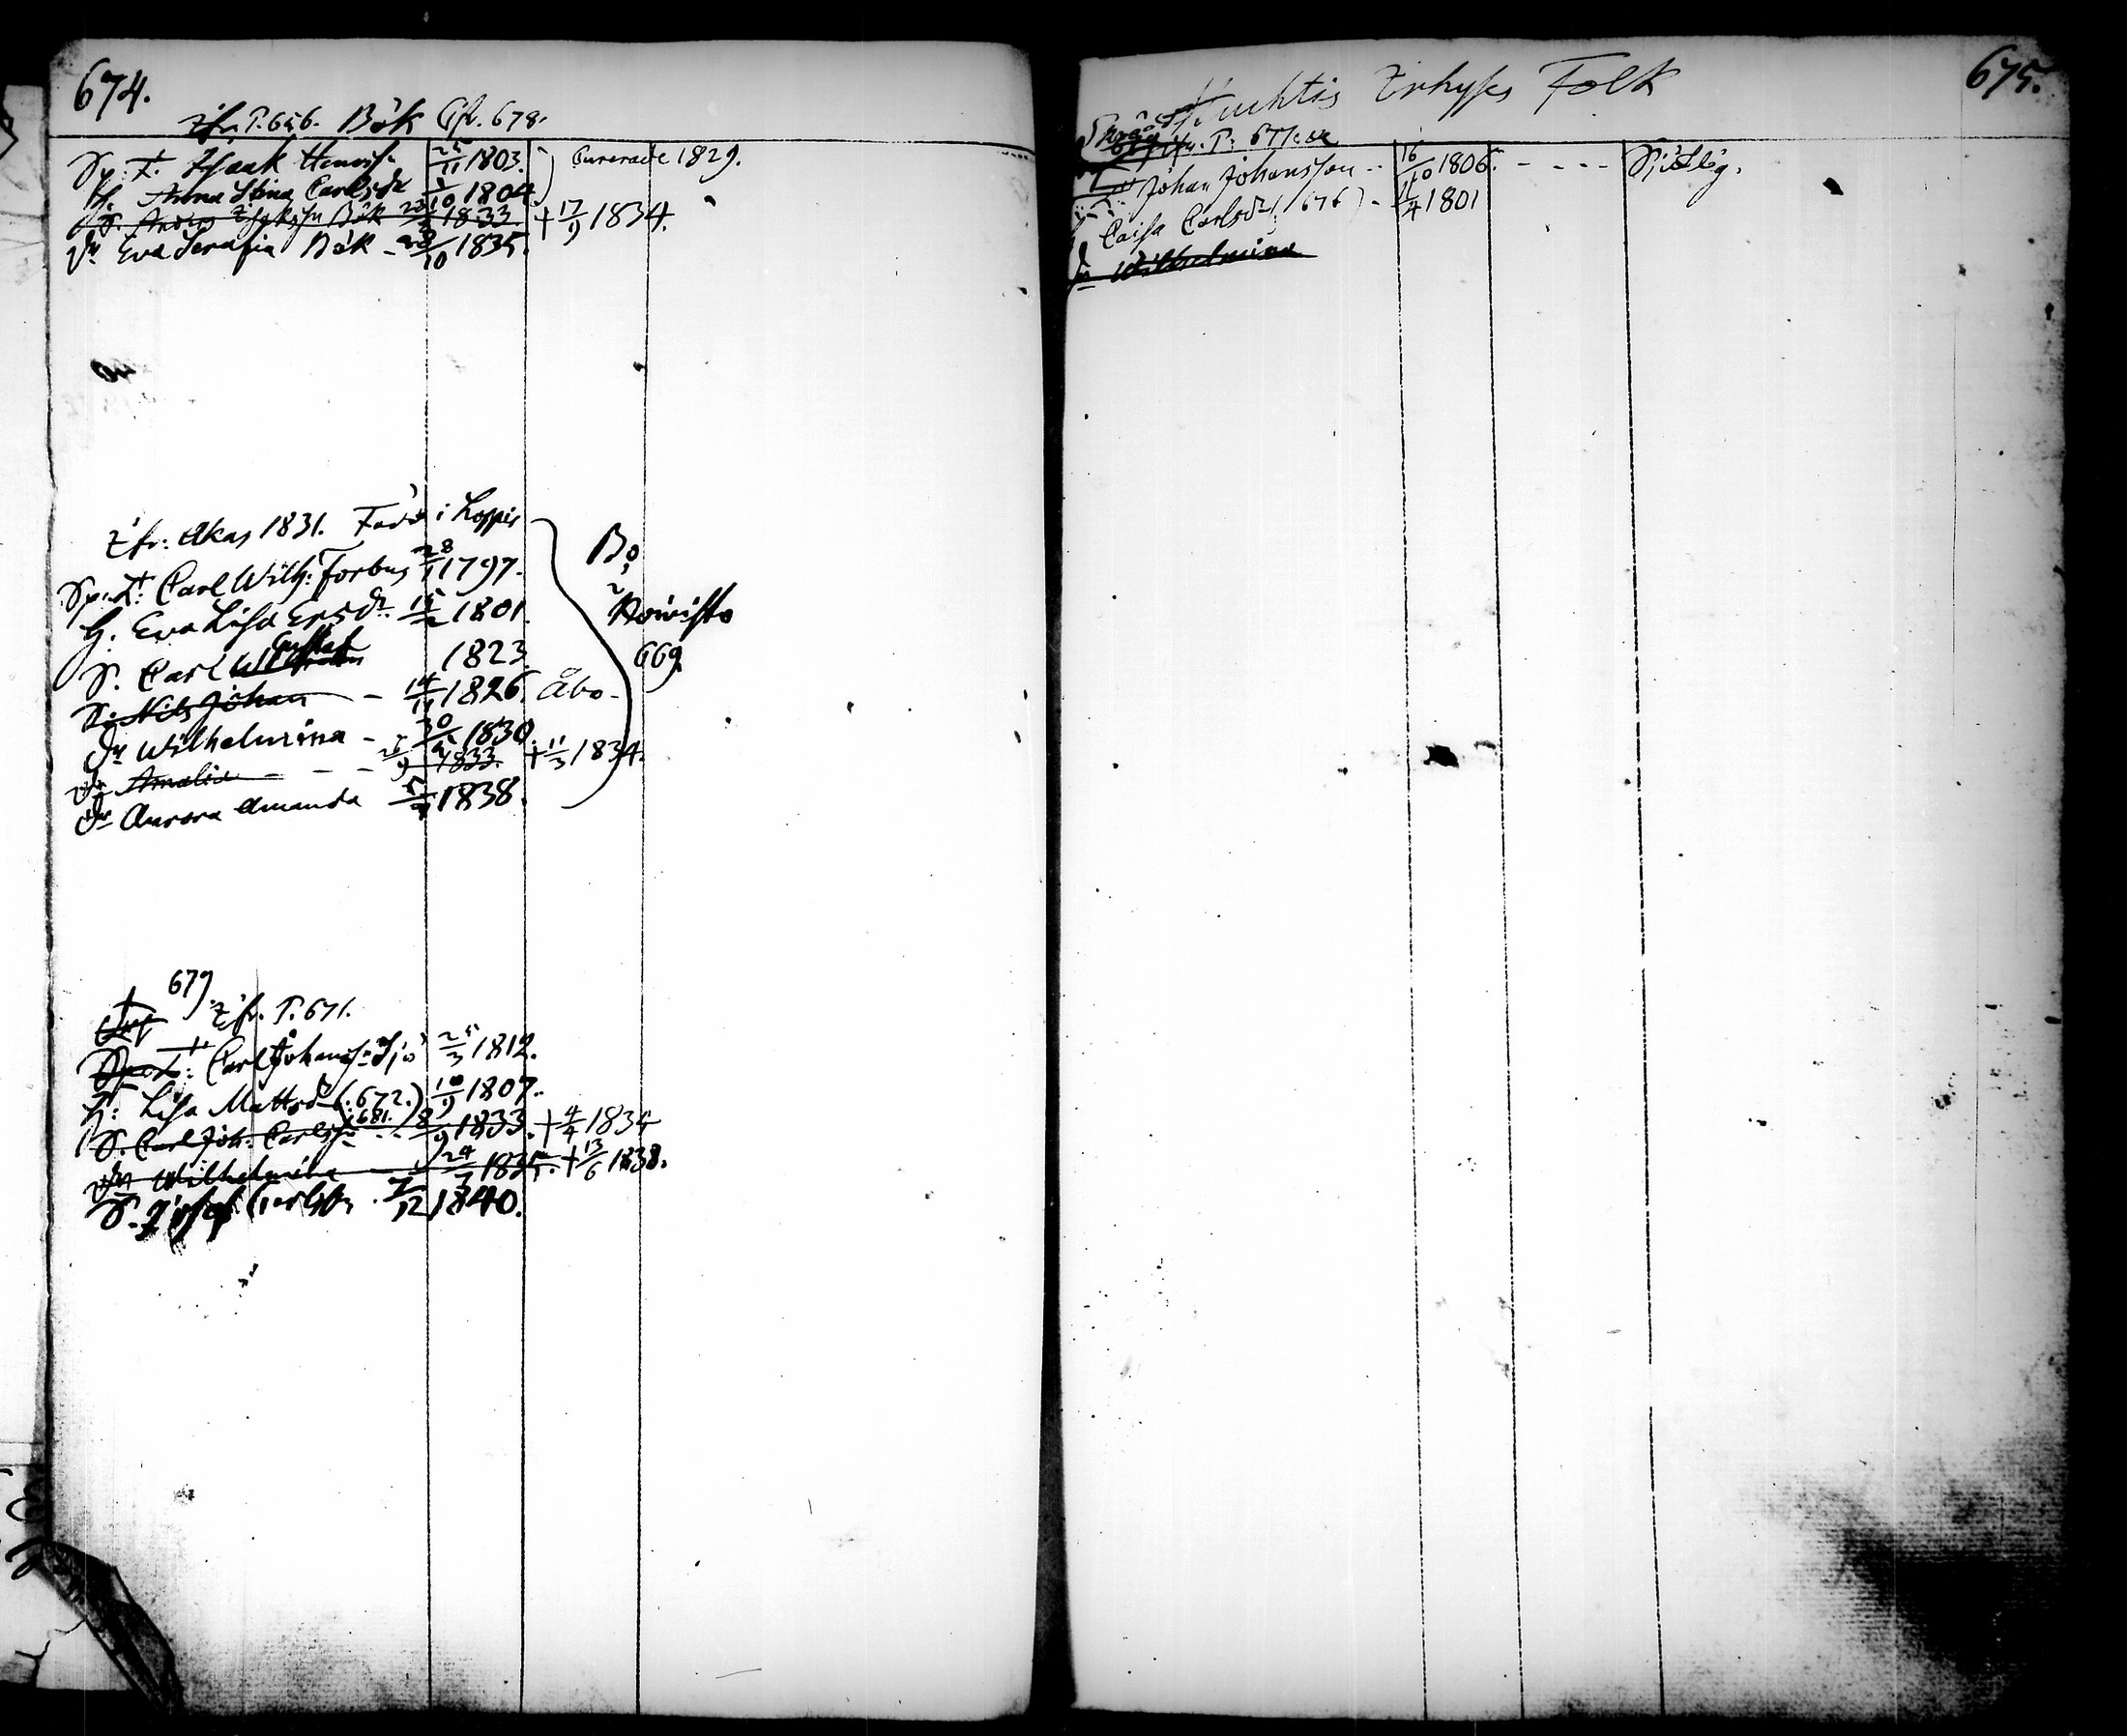 674.
Ifr. P. 656. Bök Cfr. 678.
Sp. T. Isaak Henrichs 25/11 1803. Curerade 1829.
H. Anna Stina Carlsdr 1/10 1804
S. Anders Isaksson Bök 1833 + 17/9 1834.
Dr Eva Serafia Bök - 28/10 1835.
Ifr: Akas 1831. i Loppis
Sp. T: Carl Wilh: Forbus 28/11 1797.
H. Eva Lisa Ersdr 1801.
S. Carl Gustaf 1823
S. Nils Johan - 1826. Åbo.
Dr Wilhelmina - 1830.
Dr Amalia - - - 1833. + 11/3 1834.
Dr Aurora Amanda 1838.
Bo
Koivisto
669.
679.
Ifr. P. 671.
Sp. T: Carl Johans. Sjö 25/3 1812.
H: Lisa Mattsdr (:672.) 10/9 1807.
681.
S. Carl Joh: Carlss 8/9 1833. + 4/4 1834
Dr Wilhelmina 24/7 1835. + 13/6 1838.
S. Carlss 7/12 1840.
Huhtis Inhyses Folk
675.
P. 677
Johan Johansson - 16/10 1806. - - - -
Caisa Carlsdr (676) - 11/4 1801
Dr Wilhelmina